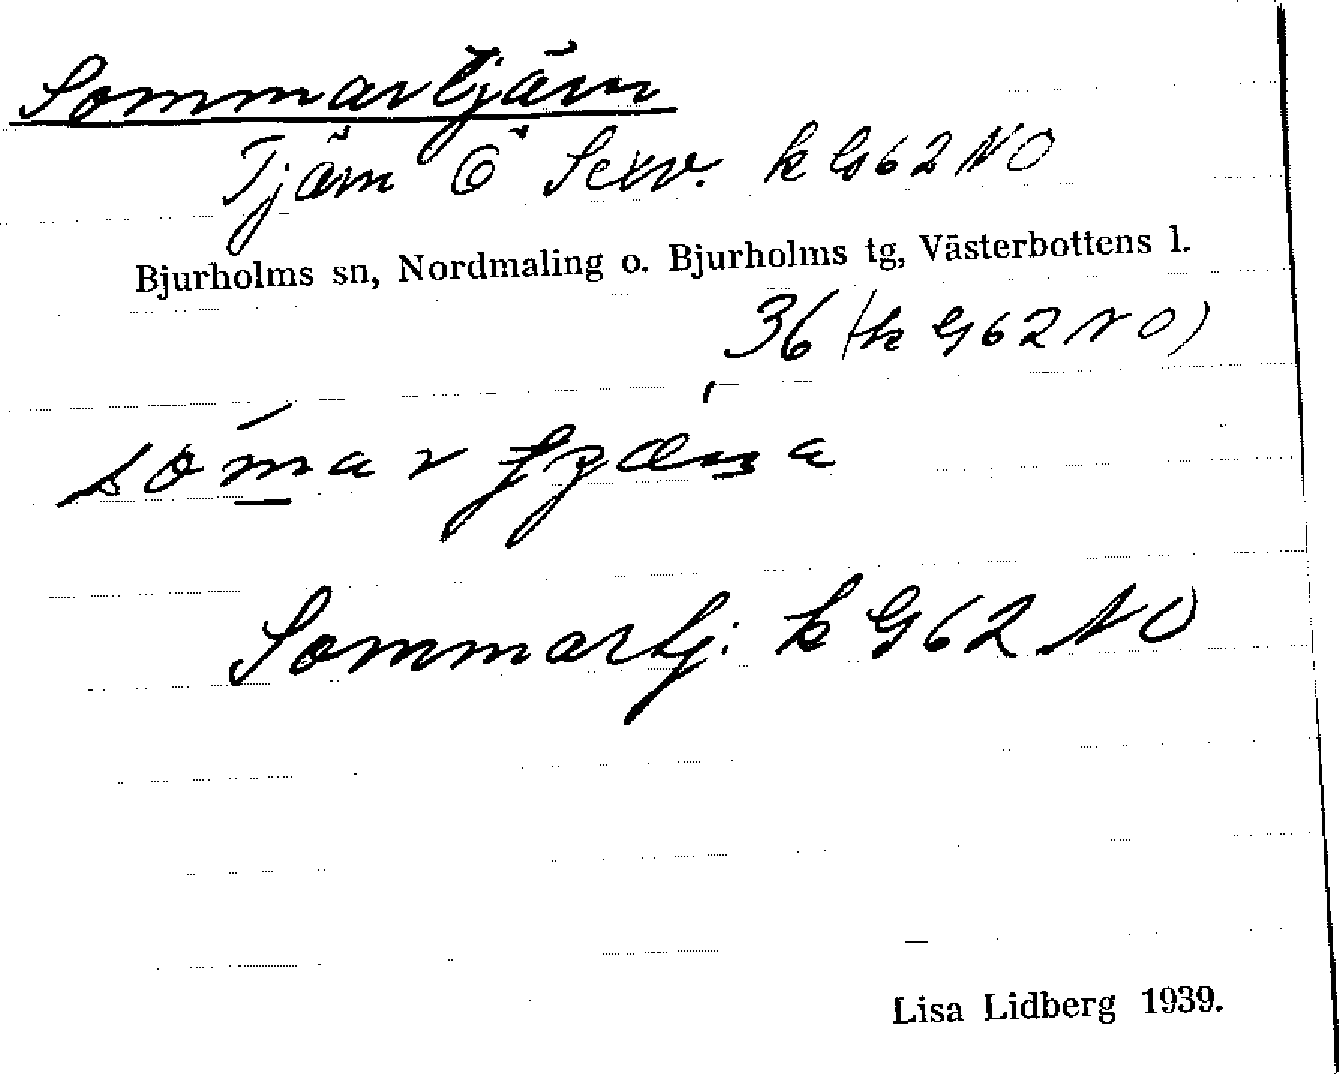 Sommartjärn
Tjärn Ö Serv. k G62 NO
Bjurholms sn, Nordmaling o. Bjurholms tg, Västerbottens l.
36 (k G62 NO)
Sommartj: k G62 NO
Lisa Lidberg 1939.